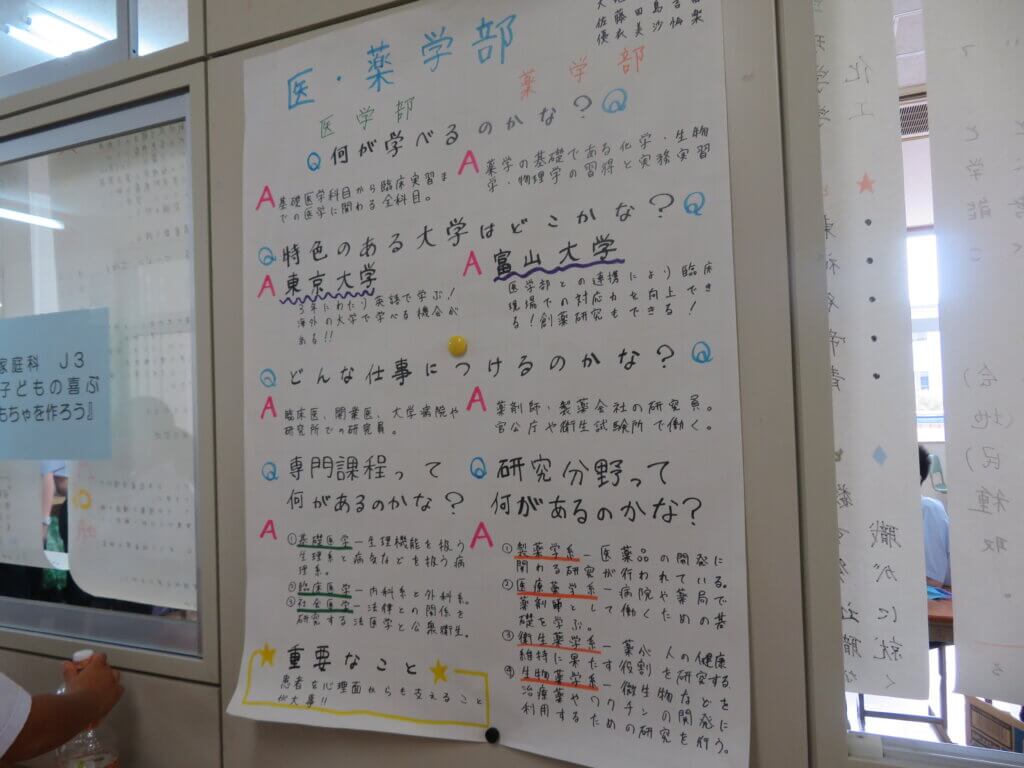 医・薬学部
医学部
薬学部
Q 何が学べるのかな？Q
A 基礎医学科目から臨床実習ま
での医学に関わる全科目。
A 薬学の基礎である化学・生物
学・物理学の習得と実務実習
Q 特色のある大学はどこかな？Q
A 東京大学
3年にわたり英語で学ぶ！
海外の大学で学べる機会が
ある!!
A 富山大学
医学部との連携により臨床
現場での対応力を向上でき
る！創薬研究もできる！
Q どんな仕事につけるのかな？Q
A 臨床医、開業医、大学病院や
研究所での研究員。
A 薬剤師・製薬会社の研究員。
官公庁や衛生試験所で働く。
Q 専門課程って
何があるのかな？
A
①基礎医学－生理機能を扱う
生理系と病気などを扱う病
理系。
②臨床医学－内科系と外科系。
③社会医学－法律との関係を
研究する法医学と公衆衛生。
★重要なこと★
患者を心理面からも支えること
が大事!!
Q 研究分野って
何があるのかな？
A
①製薬学系－医薬品の開発に
関わる研究が行われている。
②医療薬学系－病院や薬局で
薬剤師として働くための基
礎を学ぶ。
③衛生薬学系－薬が人の健康
維持に果たす役割を研究する。
④生物薬学系－微生物などを
治療薬やワクチンの開発に
利用するための研究を行う。
家庭科 J3
子どもの喜ぶ
もちゃを作ろう』